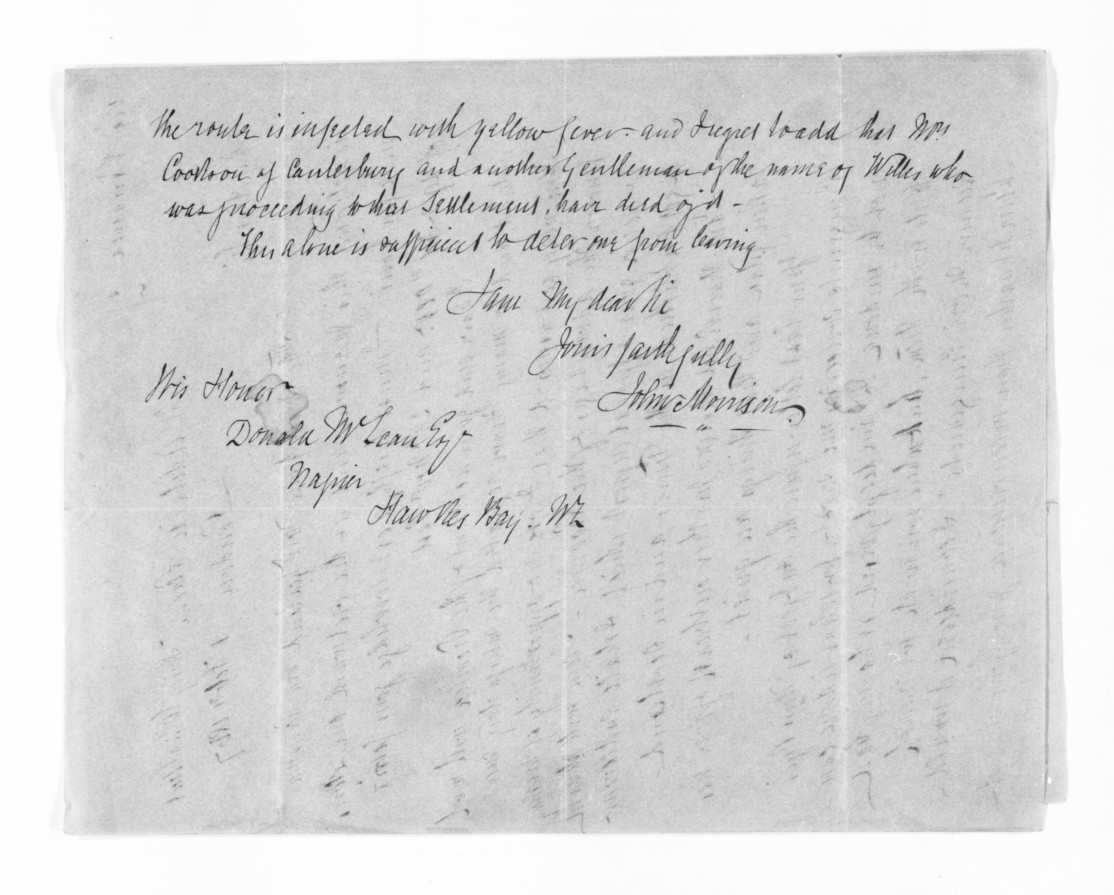 the route is infected with yellow fever - and I regret to add that Mrs
Cookson of Canterbury and another Gentleman of the name of Willis who
was proceeding to that Settlement, have died of it -
This alone is sufficient to deter one from leaving
I am My dear Sir
Yours faithfully
John Morrison
His Honor
Donald McLean Esqr
Napier
Hawkes Bay. NZ